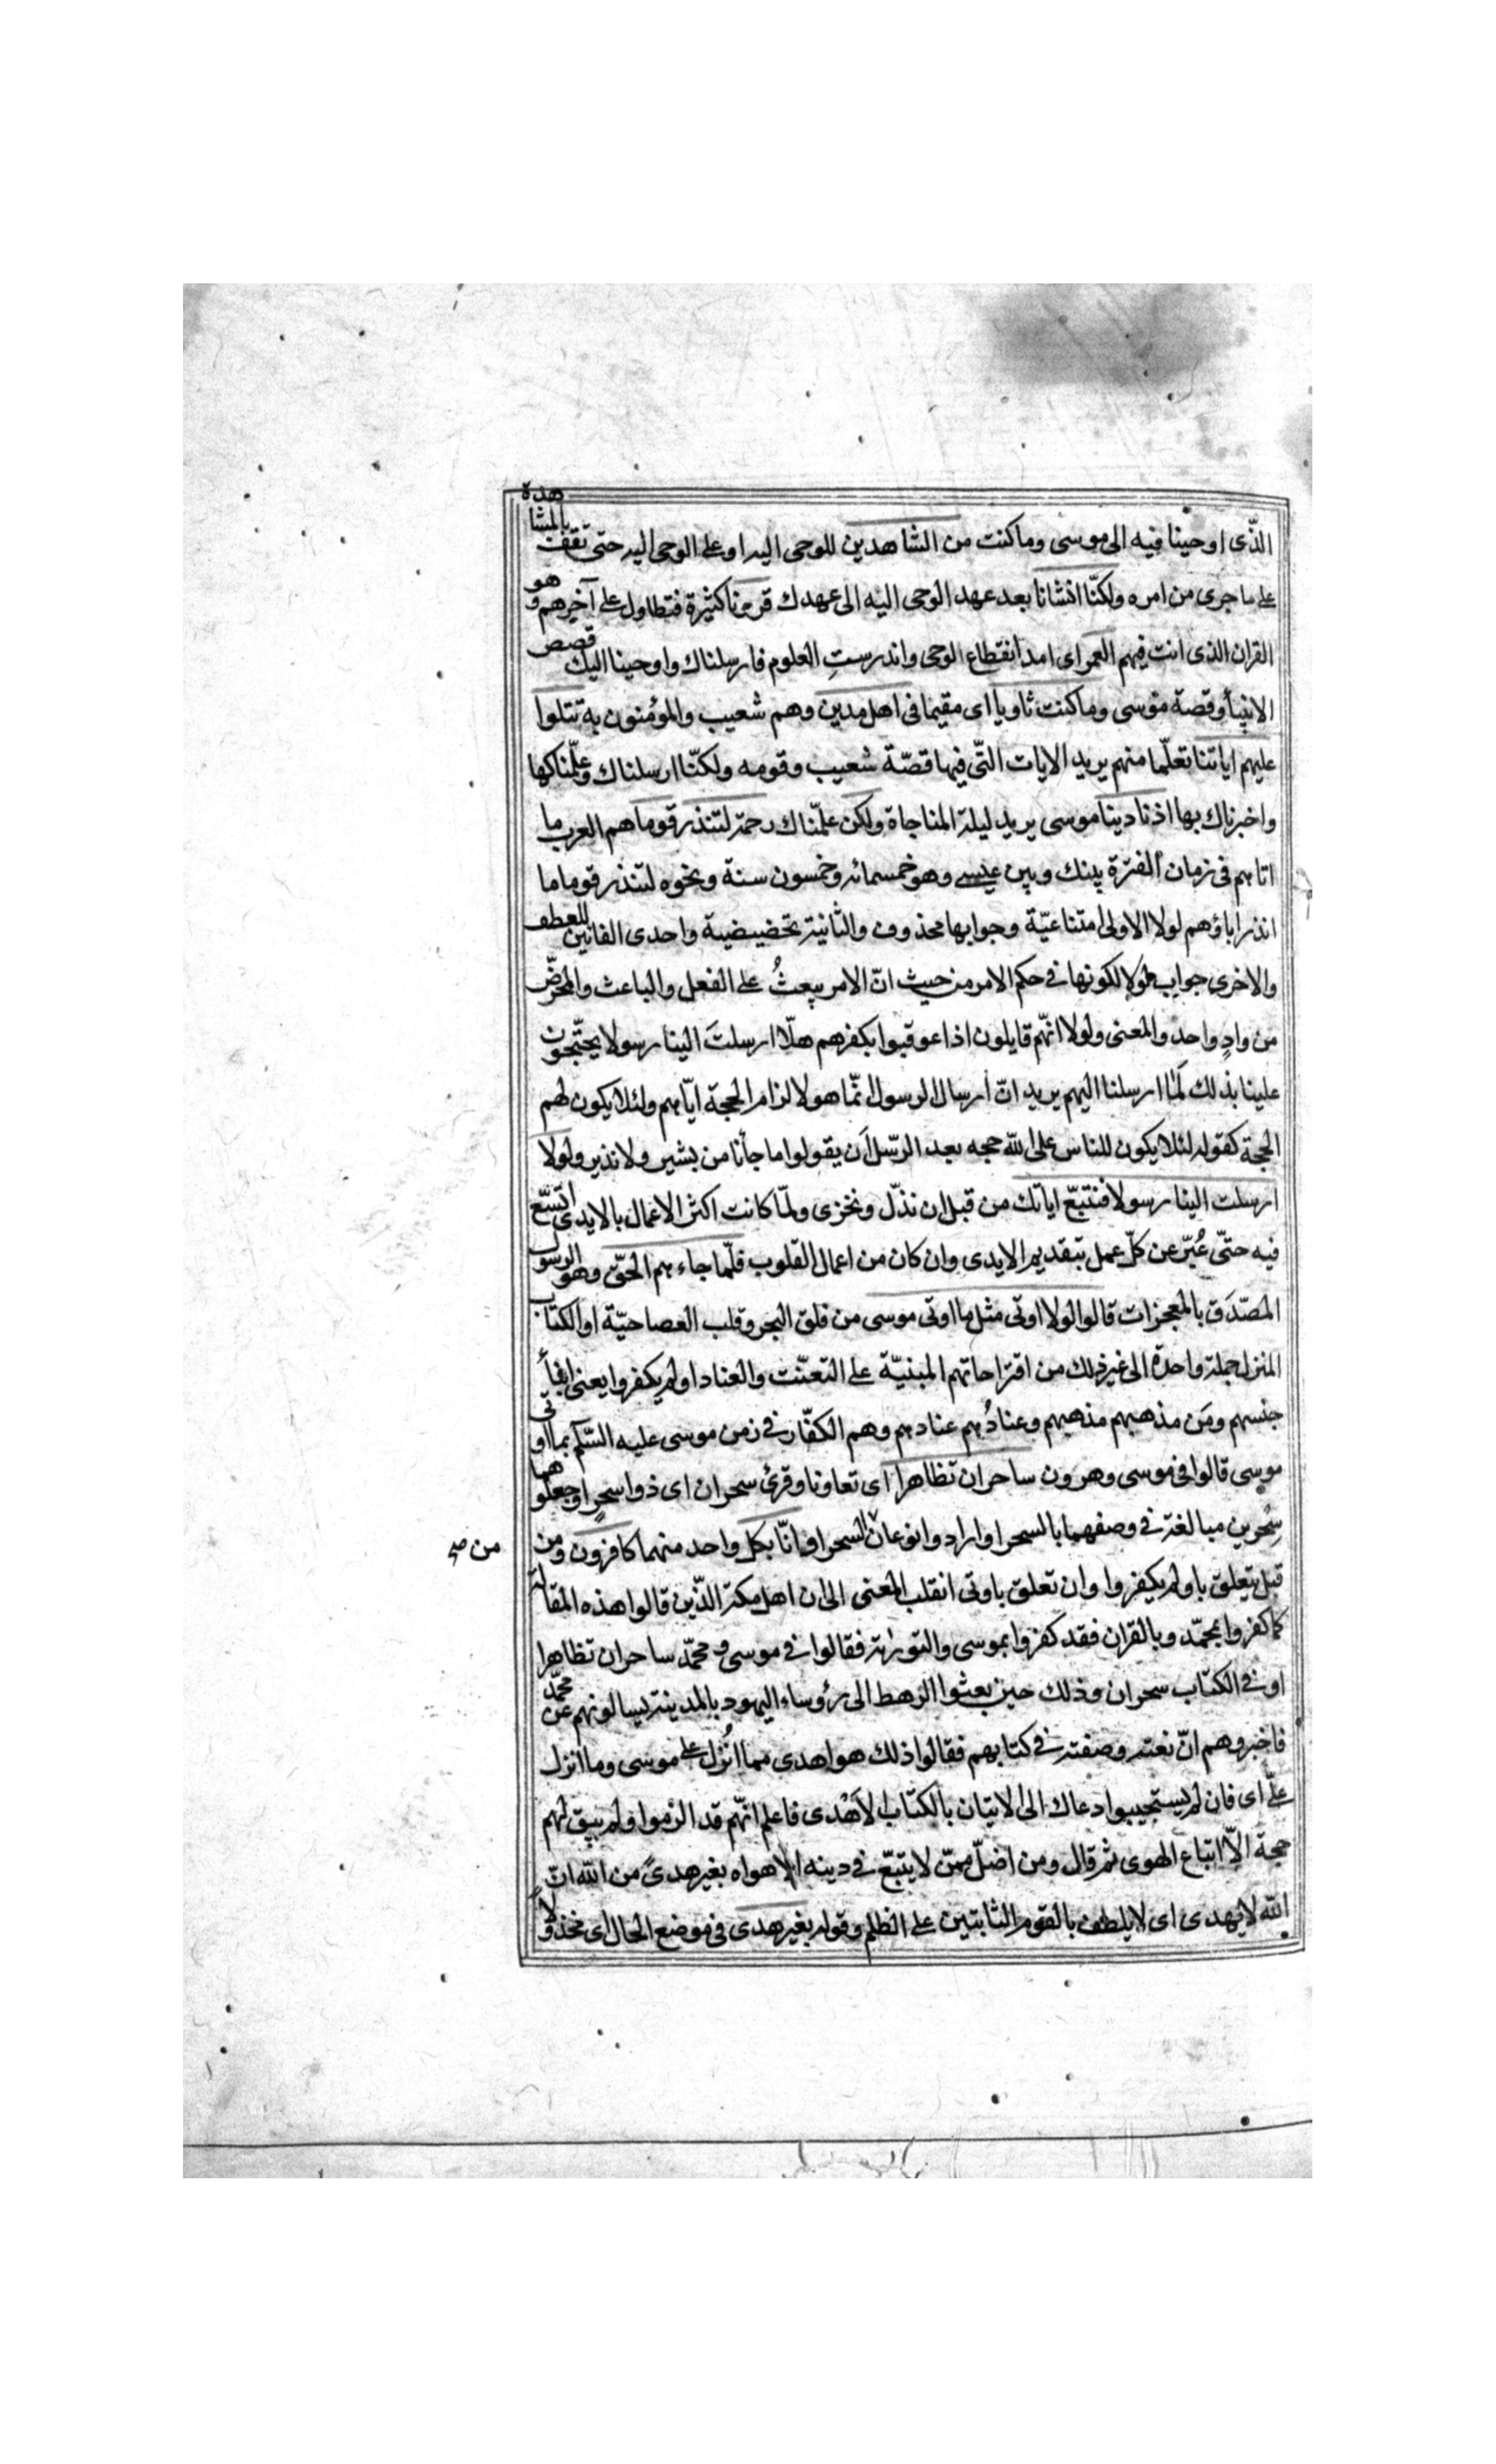 الذّى اوحينا فيه الى موسى وما كنت من الشاهدين للوحى اليه او على الوحى اليه حتى تقف بالمشاهدة
على ما جرى من امره ولكنّا انشانا بعد عهد الوحى اليه الى عهدك قرونا كثيرة فتطاول على آخرهم وهو
القران الذى انت فيهم العمر اى امد انقطاع الوحى واندرستِ العلوم فارسلناك واوحينا اليك قصص
الانبيأ وقصة موسى وما كنت ثاويا اى مقيما فى اهل مدين وهم شعيب والمؤمنون به تتلوا
عليهم اياتنا تعلّما منهم يريد الايات التّى فيها قصّة شعيب وقومه ولكنّا ارسلناك وعلّمناكها
واخبرناك بها اذ نادينا موسى يريد ليلة المناجاة ولكن علمّناك رحمة لتنذر قوما هم العرب ما
اتاهم فى زمان الفترة بينك وبين عيسى وهو خمسمائه وخمسون سنة ونحوه لتنذر قوما ما
انذر اباؤهم لولا الاولى امتناعيّة وجوابها محذوف والثانية تحضيضية واحدى الفائين للعطف
والاخرى جواب لولا لكونها فى حكم الامر من حيث انّ الامر يبعثُ على الفعل والباعث والمحرّض
من وادٍ واحد والمعنى ولولا انهّم قايلون اذا عوقبوا بكفرهم هلّا ارسلتَ الينا رسولا يحتّجون
علينا بذلك لَمٰا ارسلنا اليهم يريد انّ ارسال الرسول انّما هو لالزام الحجة ايّاهم ولئلا يكون لهم
الحجة كقوله لئلا يكون للناس على الله حجه بعد الرّسل اَن يقولوا ما جأنا من بشير ولا نذير ولولا
ارسلت الينا رسولا فنتبّع اياتك من قبل ان نذلّ ونخزى ولمّا كانت اكثر الاعمال بالايدى اتّسّع
فيه حتّى عُبّر عن كلّ عمل بتقديم الايدى وان كان من اعمال القلوب فلّما جاءهم الحقّ وهو الرسول
المصّدَق بالمعجزات قالوا لولا اوتى مثل ما اوتى موسى من فلق البحر وقلب العصا حيّة او الكتاب
المنزل جملة واحدة الى غير ذلك من اقتراحاتهم المبنيّة على التعنّت والعناد اولم يكفروا يعنى ابنأ
جنسهم ومَن مذهبهم مذهبهم وعنادُهم عنادهم وهم الكفّار فى زمن موسى عليه السّلم بما اوتى
موسى قالوا فى موسى وهرون ساحران تظاهرا اى تعاونا وقرئ سحران اى ذوا سحرٍ او جعلوهما
سِحْرين مبالغة فى وصفهما بالسحر او ارادوا نوعان السحر او انّا بكل واحد منهما كافرون ومن
من صح
قبل يتعلق باولم يكفروا وان تعلق باوتى انقلب المعنى الى ان اهل مكة الذّين قالوا هذه المقالة
كما كفروا بمحمّد وبالقران فقد كفروا بموسى والتورٰية فقالوا فى موسى ومحمّد ساحران تظاهرا
او فى الكتاب سحران وذلك حين بعثوا الرهط الى رؤساء اليهود بالمدينة يسالونهم عن محمّد
فاخبروهم انّ نعته وصفته فى كتابهم فقالوا ذلك هو اهدى مما اُنْزل على موسى وما انزل
علىّ اى فان لم يستجيبوا دعاك الى الاتيان بالكتاب الاَهْدى فاعلم انّهم قد الزموا ولم يبق لهم
حجة الّا اتباع الهوى ثم قال ومن اضلّ ممّن لا يتبّع فى دينه الا هواه بغير هدىً من الله انّ
الله لا يهدى اى لا يلطف بالقوم الثابتين على الظلم وقوله بغير هدى فى موضع الحال اى مخذولاً